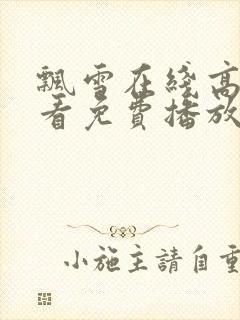 飄雪在綫高
看免費播放
小施主請自重